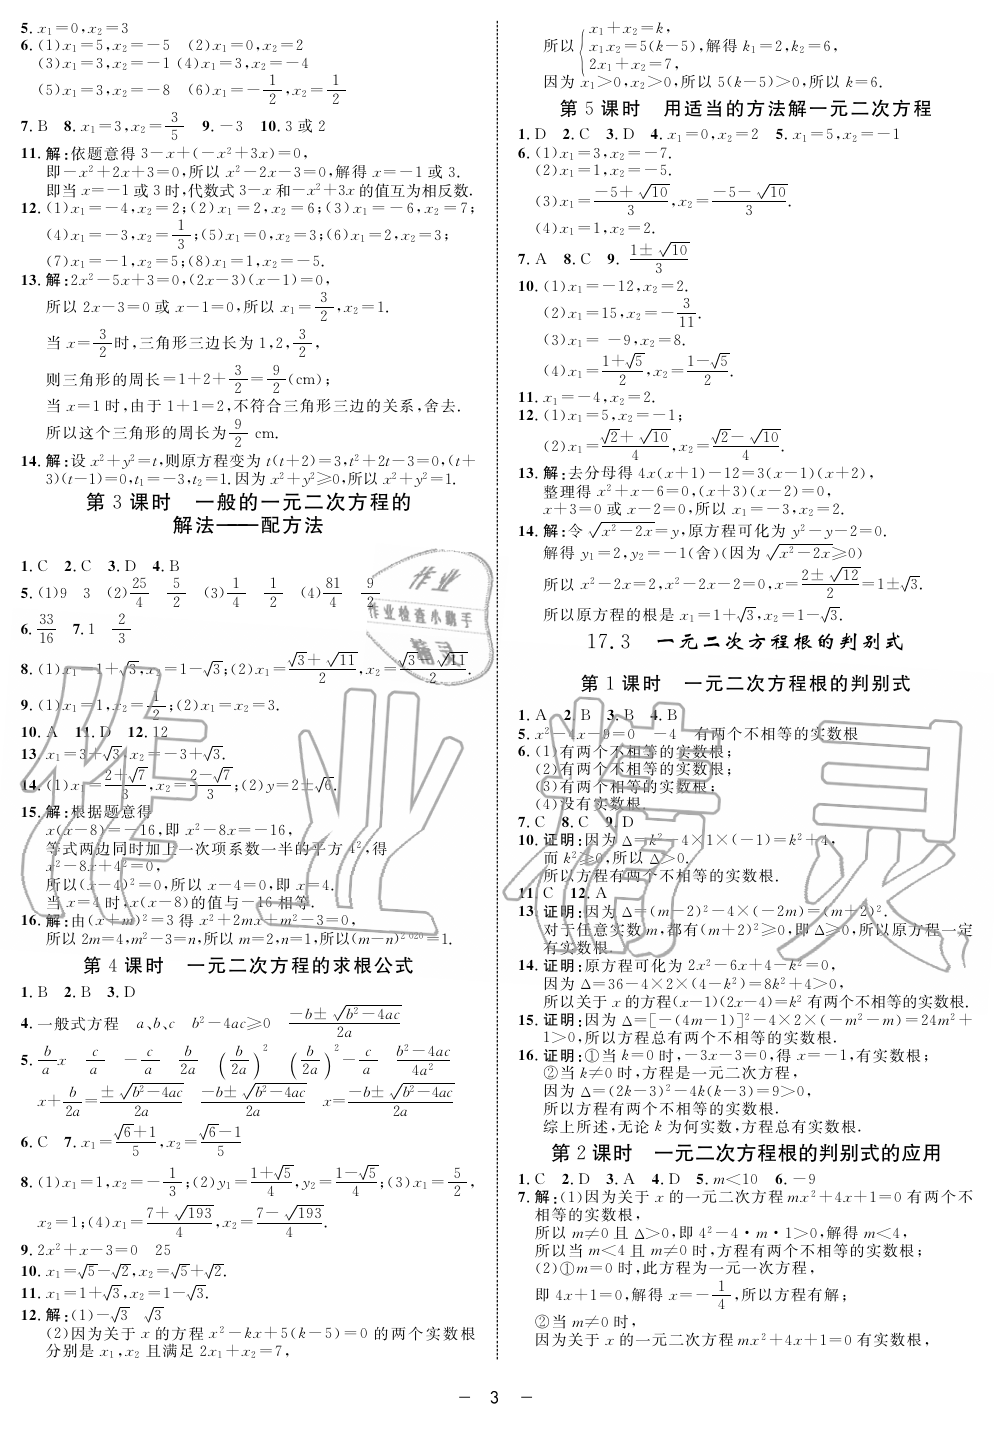 5. x₁=0,x₂=3
6. (1)x₁=5,x₂=-5 (2)x₁=0,x₂=2
(3)x₁=3,x₂=-1 (4)x₁=3,x₂=-4
(5)x₁=3,x₂=-8 (6)x₁=-1/2,x₂=1/2
7. B 8. x₁=3,x₂=3/5 9. -3 10. 3 或 2
11. 解:依题意得 3-x+(-x²+3x)=0,
即-x²+2x+3=0,所以 x²-2x-3=0,解得 x=-1 或 3.
即当 x=-1 或 3 时,代数式 3-x 和-x²+3x 的值互为相反数.
12. (1)x₁=-4,x₂=2;(2)x₁=2,x₂=6;(3)x₁=-6,x₂=7;
(4)x₁=-3,x₂=1/3;(5)x₁=0,x₂=3;(6)x₁=2,x₂=3;
(7)x₁=-1,x₂=5;(8)x₁=1,x₂=-5.
13. 解:2x²-5x+3=0,(2x-3)(x-1)=0,
所以 2x-3=0 或 x-1=0,所以 x₁=3/2,x₂=1.
当 x=3/2时,三角形三边长为 1,2,3/2,
则三角形的周长=1+2+3/2=9/2(cm);
当 x=1 时,由于 1+1=2,不符合三角形三边的关系,舍去.
所以这个三角形的周长为9/2 cm.
14. 解:设 x²+y²=t,则原方程变为 t(t+2)=3,t²+2t-3=0,(t+
3)(t-1)=0,t₁=-3,t₂=1.因为 x²+y²≥0,所以 x²+y²=1.
第 3 课时 一般的一元二次方程的
解法——配方法
1. C 2. C 3. D 4. B
5. (1)9 3 (2)25/4 5/2 (3)1/4 1/2 (4)81/4 9/2
6. 33/16 7. 1 2/3
8. (1)x₁=1+√3,x₂=1-√3;(2)x₁=(√3+√11)/2,x₂=(√3-√11)/2.
9. (1)x₁=1,x₂=1/2;(2)x₁=x₂=3.
10. A 11. D 12. 12
13. x₁=3+√3,x₂=-3+√3.
14. (1)x₁=(2+√7)/3,x₂=(2-√7)/3;(2)y=2±√6.
15. 解:根据题意得
x(x-8)=-16,即 x²-8x=-16,
等式两边同时加上一次项系数一半的平方 4²,得
x²-8x+4²=0,
所以(x-4)²=0,所以 x-4=0,即 x=4.
当 x=4 时,x(x-8)的值与-16 相等.
16. 解:由(x+m)²=3 得 x²+2mx+m²-3=0,
所以 2m=4,m²-3=n,所以 m=2,n=1,所以(m-n)²⁰²⁰=1.
第 4 课时 一元二次方程的求根公式
1. B 2. B 3. D
4. 一般式方程 a、b、c b²-4ac≥0 (-b±√(b²-4ac))/2a
5. b/a x c/a -c/a b/2a (b/2a)² (b/2a)²-c/a (b²-4ac)/4a²
x+b/2a=±√(b²-4ac)/2a (-b±√(b²-4ac))/2a x=(-b±√(b²-4ac))/2a
6. C 7. x₁=(√6+1)/5,x₂=(√6-1)/5
8. (1)x₁=1,x₂=-1/3;(2)y₁=(1+√5)/4,y₂=(1-√5)/4;(3)x₁=5/2,
x₂=1;(4)x₁=(7+√193)/4,x₂=(7-√193)/4.
9. 2x²+x-3=0 25
10. x₁=√5-√2,x₂=√5+√2.
11. x₁=1+√3,x₂=1-√3.
12. 解:(1)-√3 √3
(2)因为关于 x 的方程 x²-kx+5(k-5)=0 的两个实数根
分别是 x₁,x₂ 且满足 2x₁+x₂=7,
所以{x₁+x₂=k,
x₁x₂=5(k-5),解得 k₁=2,k₂=6,
2x₁+x₂=7,
因为 x₁>0,x₂>0,所以 5(k-5)>0,所以 k=6.
第 5 课时 用适当的方法解一元二次方程
1. D 2. C 3. D 4. x₁=0,x₂=2 5. x₁=5,x₂=-1
6. (1)x₁=3,x₂=-7.
(2)x₁=1,x₂=-5.
(3)x₁=(-5+√10)/3,x₂=(-5-√10)/3.
(4)x₁=1,x₂=2.
7. A 8. C 9. (1±√10)/3
10. (1)x₁=-12,x₂=2.
(2)x₁=15,x₂=-3/11.
(3)x₁=-9,x₂=8.
(4)x₁=(1+√5)/2,x₂=(1-√5)/2.
11. x₁=-4,x₂=2.
12. (1)x₁=5,x₂=-1;
(2)x₁=(√2+√10)/4,x₂=(√2-√10)/4.
13. 解:去分母得 4x(x+1)-12=3(x-1)(x+2),
整理得 x²+x-6=0,(x+3)(x-2)=0,
x+3=0 或 x-2=0,所以 x₁=-3,x₂=2.
14. 解:令 √(x²-2x)=y,原方程可化为 y²-y-2=0.
解得 y₁=2,y₂=-1(舍)(因为 √(x²-2x)≥0)
所以 x²-2x=2,x²-2x-2=0,x=(2±√12)/2=1±√3.
所以原方程的根是 x₁=1+√3,x₂=1-√3.
17.3 一元二次方程根的判别式
第 1 课时 一元二次方程根的判别式
1. A 2. B 3. B 4. B
5. x²-4x-9=0 -4 有两个不相等的实数根
6. (1)有两个不相等的实数根;
(2)有两个不相等的实数根;
(3)有两个相等的实数根;
(4)没有实数根.
7. C 8. C 9. D
10. 证明:因为 Δ=k²-4×1×(-1)=k²+4,
而 k²≥0,所以 Δ>0.
所以方程有两个不相等的实数根.
11. C 12. A
13. 证明:因为 Δ=(m-2)²-4×(-2m)=(m+2)².
对于任意实数 m,都有(m+2)²≥0,即 Δ≥0,所以原方程一定
有实数根.
14. 证明:原方程可化为 2x²-6x+4-k²=0,
因为 Δ=36-4×2×(4-k²)=8k²+4>0,
所以关于 x 的方程(x-1)(2x-4)=k² 有两个不相等的实数根.
15. 证明:因为 Δ=[-(4m-1)]²-4×2×(-m²-m)=24m²+
1>0,所以方程总有两个不相等的实数根.
16. 证明:①当 k=0 时,-3x-3=0,得 x=-1,有实数根;
②当 k≠0 时,方程是一元二次方程,
因为 Δ=(2k-3)²-4k(k-3)=9>0,
所以方程有两个不相等的实数根.
综上所述,无论 k 为何实数,方程总有实数根.
第 2 课时 一元二次方程根的判别式的应用
1. C 2. D 3. A 4. D 5. m<10 6. -9
7. 解:(1)因为关于 x 的一元二次方程 mx²+4x+1=0 有两个不
相等的实数根,
所以 m≠0 且 Δ>0,即 4²-4·m·1>0,解得 m<4,
所以当 m<4 且 m≠0 时,方程有两个不相等的实数根;
(2)①m=0 时,此方程为一元一次方程,
即 4x+1=0,解得 x=-1/4,所以方程有解;
②当 m≠0 时,
因为关于 x 的一元二次方程 mx²+4x+1=0 有实数根,
- 3 -
作业
作业检查小助手
精灵
作业精灵